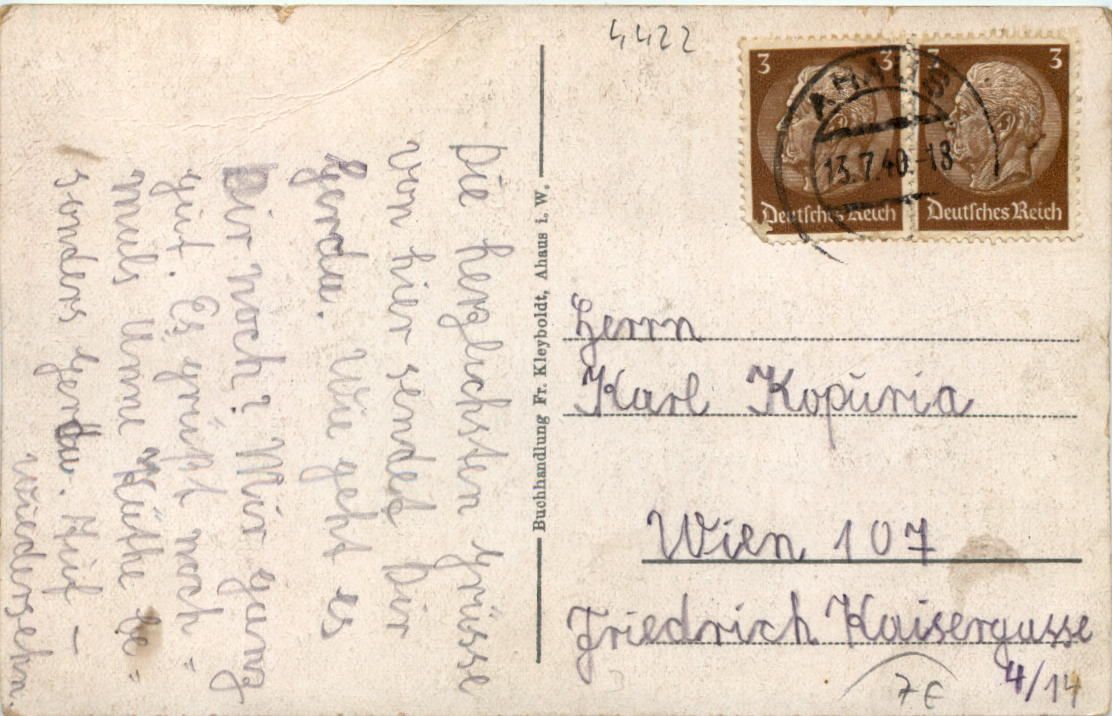 4422
3 3
3 3
Deutsches Reich
Deutsches Reich
AHAUS
13.7.40.-18
Die herzlichsten Grüsse
von hier sendet Dir
Gerda. Wie geht es
Dir noch? Mir ganz
gut. Es grüßt noch =
mals Anne Käthe be =
sonders Gerda. Auf -
wiedersehn.
Buchhandlung Fr. Kleyboldt, Ahaus i. W.
Herrn
Karl Kopŭria
Wien 107
Friedrich Kaisergasse
4/14
7€